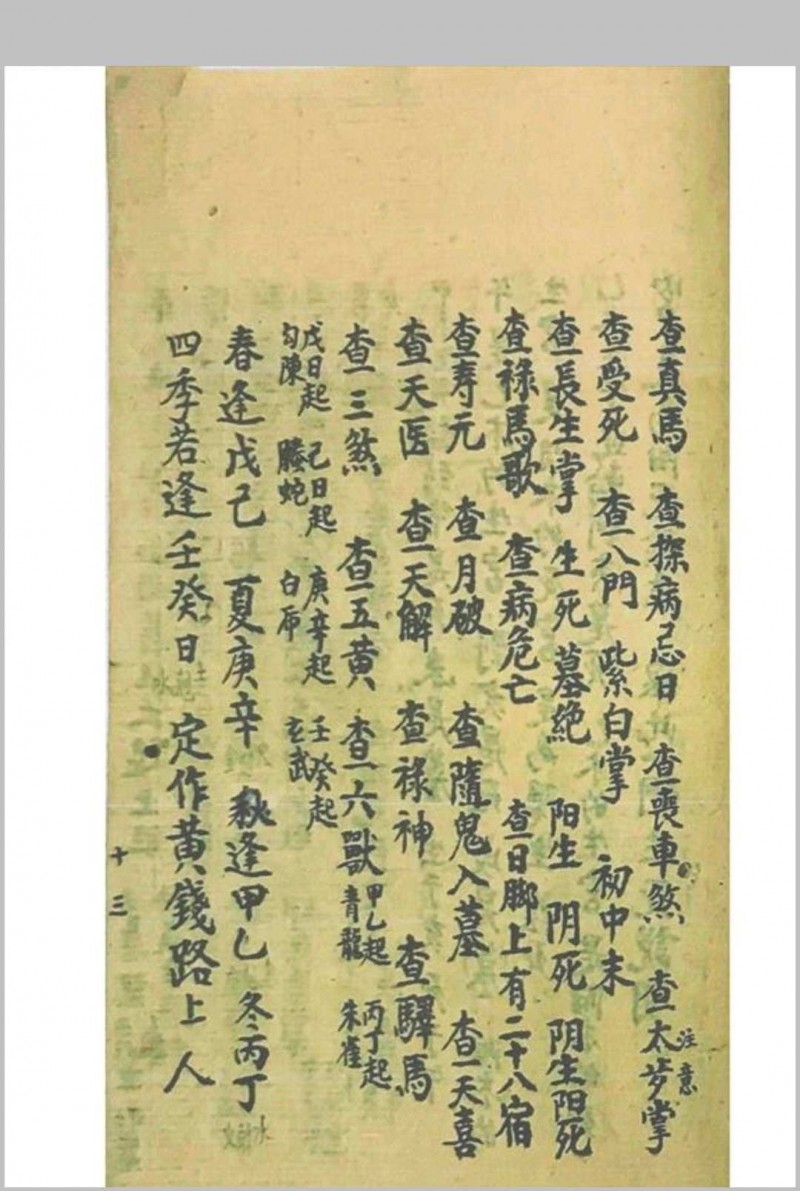 查真馬 查探病忌日 查喪車煞 查太岁掌 注意
查受死 查八門 紫白掌 初中末
查長生掌 生死墓絶 阳生阴死 阴生阳死
查禄馬歌 查病危亡 查日脚上有二十八宿
查寿元 查月破 查隨鬼入墓 查天喜
查天医 查天解 查祿神 查驛馬
查三煞 查五黄 查六獸 甲乙起青龍 丙丁起朱雀
戊日起勾陳 己日起螣蛇 庚辛起白虎 壬癸起玄武
春逢戊己 夏庚辛 秋逢甲乙 冬丙丁
四季若逢壬癸日 定作黄錢路上人
十三